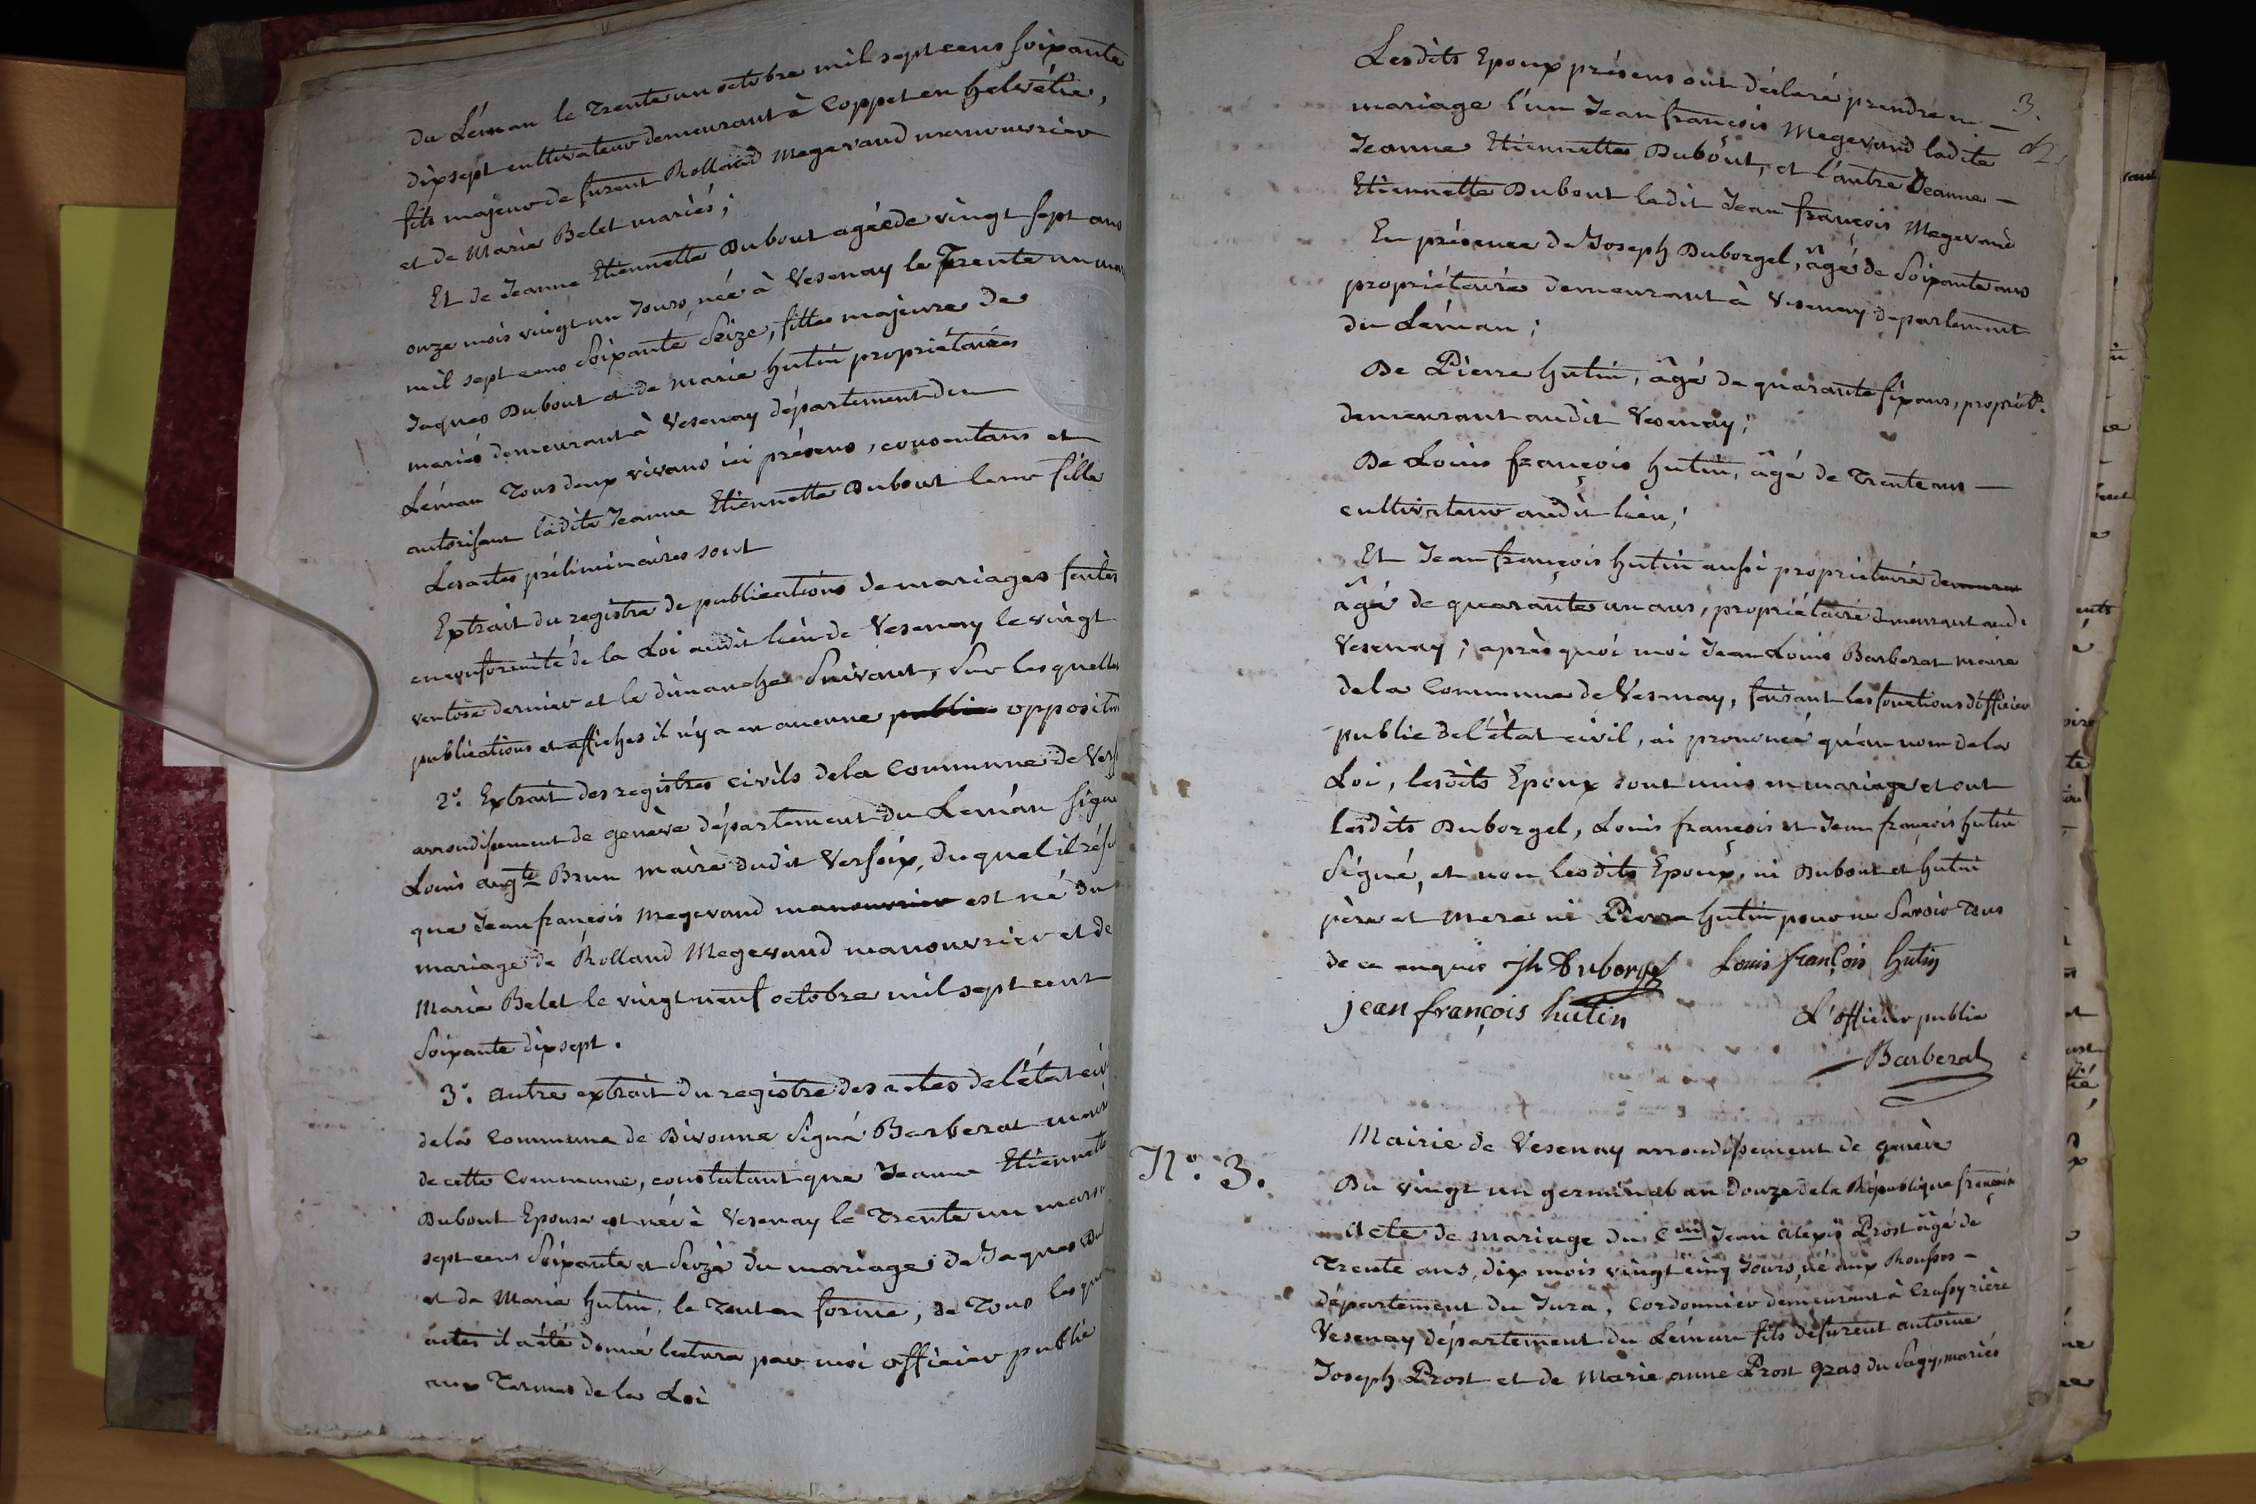 du Léman le trente un octobre mil sept cens soixante
dixsept cultivateur demeurant à Coppet en helvétie,
fils majeur de furent Rolland Megevand manouvrier
et de Marie Belet mariés ;
Et de Jeanne Etiennette Dubout agée de vingt sept ans
onze mois vingt un Jours, née à Vesenay le Trente un mars
mil sept cens Soixante Seize, fille majeure de
Jaques Dubout et de Marie hutin propriétaires
mariés demeurant à Vesenay département du
Léman Tous deux vivans ici présens, consentans et
autorisant ladite Jeanne Etiennette Dubout leur fille
Les actes préliminaires sont
Extrait du registre de publications de mariages faites
en conformité de la Loi audit lieu de Vesenay le vingt
ventose dernier et le dimanche Suivant, Sur lesquelles
publications et affiches il n'y a eu aucune public opposition
2º. Extrait des registres civils de la commune de Vers
arrondissement de genève département du Leman signé
Louis augte Brun maire dudit Versoix, duquel il résu
que Jean françois Megevand manouvrier est né du
mariage de Rolland Megevand manouvrier et de
Marie Belet le vingt neuf octobre mil sept cent
Soixante dixsept.
3º. autre extrait du registre des actes de l'état civ
de la Commune de Divonne Signé Barberat maire
de cette Commune, constatant que Jeanne Etiennette
Dubout Epouse est née à Vesenay le Trente un mars
sept cens Soixante et Seize du mariage de Jaques Du
et de Marie hutin, le Tout en forme, de Tous lesqu
actes il a été donné lecture par moi officier public
aux Termes de la Loi
3.
Lesdits Epoux présens ont déclaré prendre en —
mariage l'un Jean françois Megevand ladite
Jeanne Etiennette Dubout, et l'autre Jeanne —
Etiennette Dubout ledit Jean françois Megevand
En présence de Joseph Duborgel, âgé de Soixante ans
propriétaire demeurant à Vesenay département
du Léman ;
De Pierre hutin, âgé de quarante six ans, propriétre.
demeurant audit Vesenay ;
De Louis françois hutin, âgé de Trente ans —
cultivateur audit lieu ;
Et Jean françois hutin aussi propriétaire demeura
âgé de quarante un ans, propriétaire demeurant aud.
Vesenay ; après quoi moi Jean Louis Barberat maire
de la Commune de Vesenay, faisant les fonctions d'officier
public de l'état civil, ai prononcé qu'au nom de la
Loi, lesdits Epoux sont unis en mariage et ont
lesdits Duborgel, Louis françois et Jean françois hutin
Signé, et non lesdits Epoux, ni Dubout et hutin
père et mere ni Pierre hutin pour ne Savoir tous
de ce enquis Jh Duborgel Louis françois hutin
jean françois hutin L'officier public
Barberat
Nº. 3.
Mairie de Vesenay arrondissement de genève
Du vingt un germinal an Douze de la République française
Acte de mariage du Cen Jean Alexis Prost âgé de
Trente ans, dix mois vingt cinq Jours, né aux Rousses —
département du Jura, Cordonnier demeurant à Crassyrière
Vesenay département du Léman fils de furent antoine
Joseph Prost et de Marie anne Prost gras du Sagy, mariés